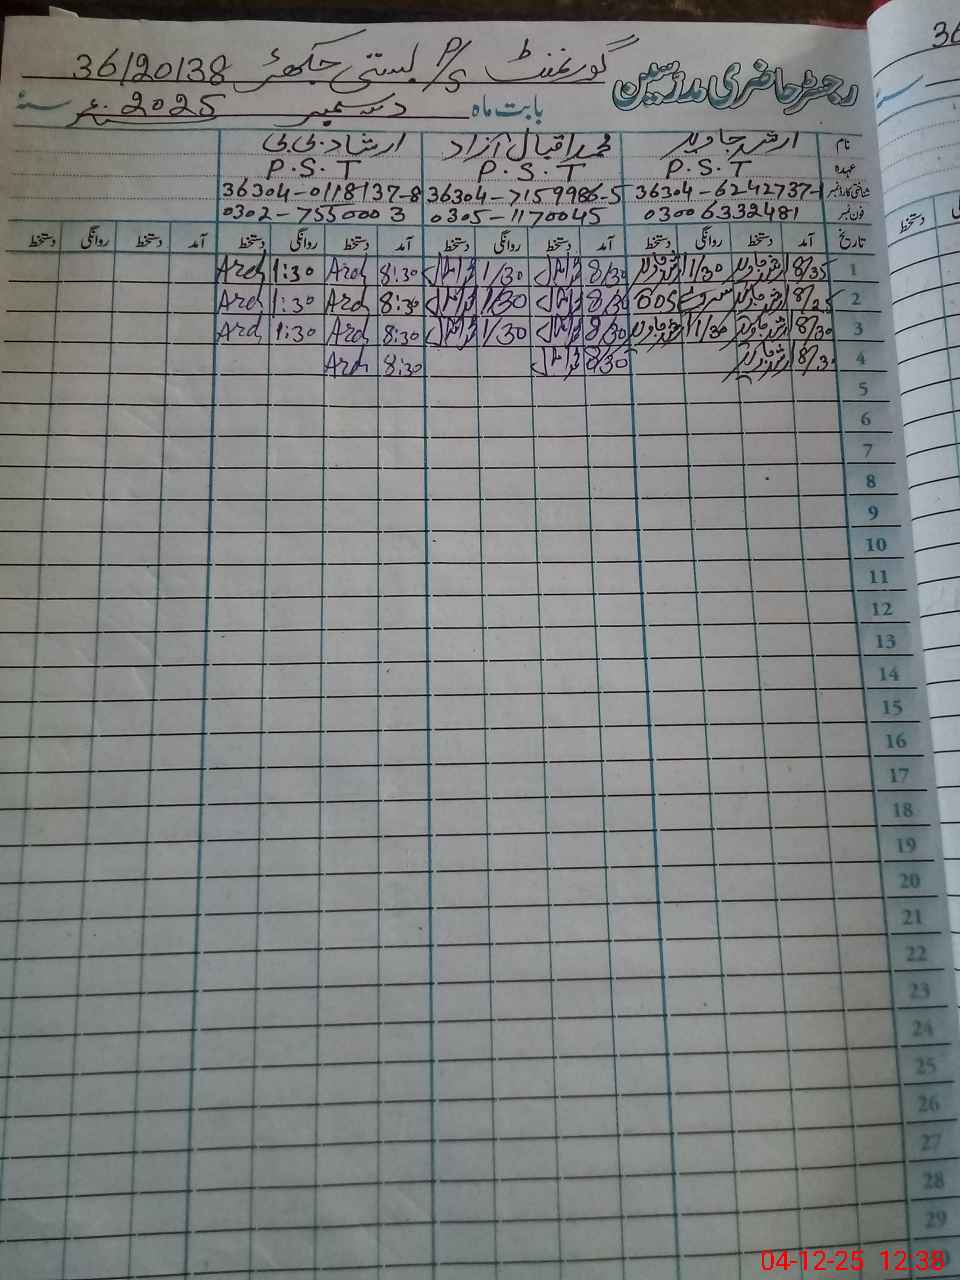 رجسٹر حاضری مدرسین گورنمنٹ P/S بستی جکھڑ 36120138
بابت ماہ دسمبر سنہ 2025
نام ارشد جاوید محمد اقبال آزاد ارشاد بی بی
عہدہ P.S.T P.S.T P.S.T
شناختی کارڈ نمبر 36304-6242737-1 36304-7159986-5 36304-0118137-8
فون نمبر 03006332481 0305-1170045 0302-7550003
تاریخ آمد دستخط روانگی دستخط آمد دستخط روانگی دستخط آمد دستخط روانگی دستخط آمد دستخط روانگی دستخط
1 8/35 1/30 8/30 1/30 8:30 Ard 1:30 Ard
2 8/25 8/30 1/30 8:30 Ard 1:30 Ard
3 8/30 1/30 8/30 1/30 8:30 Ard 1:30 Ard
4 8/30 8/30 8:30 Ard
5
6
7
8
9
10
11
12
13
14
15
16
17
18
19
20
21
22
23
24
25
26
27
28
29
04-12-25 12:38